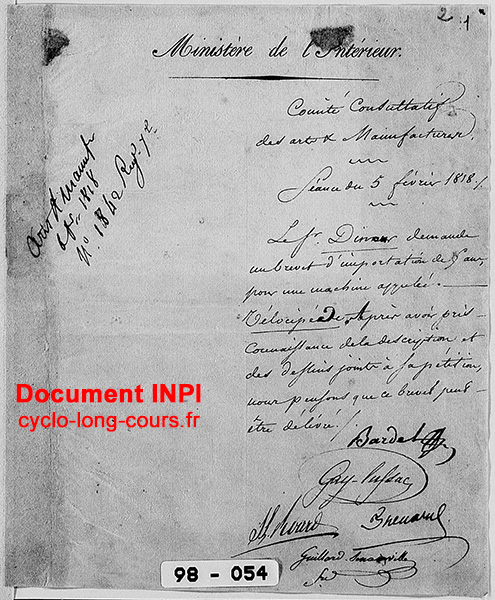 2 1
Ministère de l'Intérieur.
Comité Consultatif
des arts & Manufactures,
Séance du 5 février 1818 /.
arts & manufre
1818
N° 1842 Regr. 7e
Le Sr. Dineur demande
un brevet d'importation de 5 ans,
pour une machine appelée
Vélocipède. Après avoir pris
connaissance de la description et
des dessins joints à sa pétition,
nous pensons que ce brevet peut
être délivré /.
Document INPI
cyclo-long-cours.fr
Bardel
Gay-Lussac
Thenard
Guillard Senainville
98 - 054